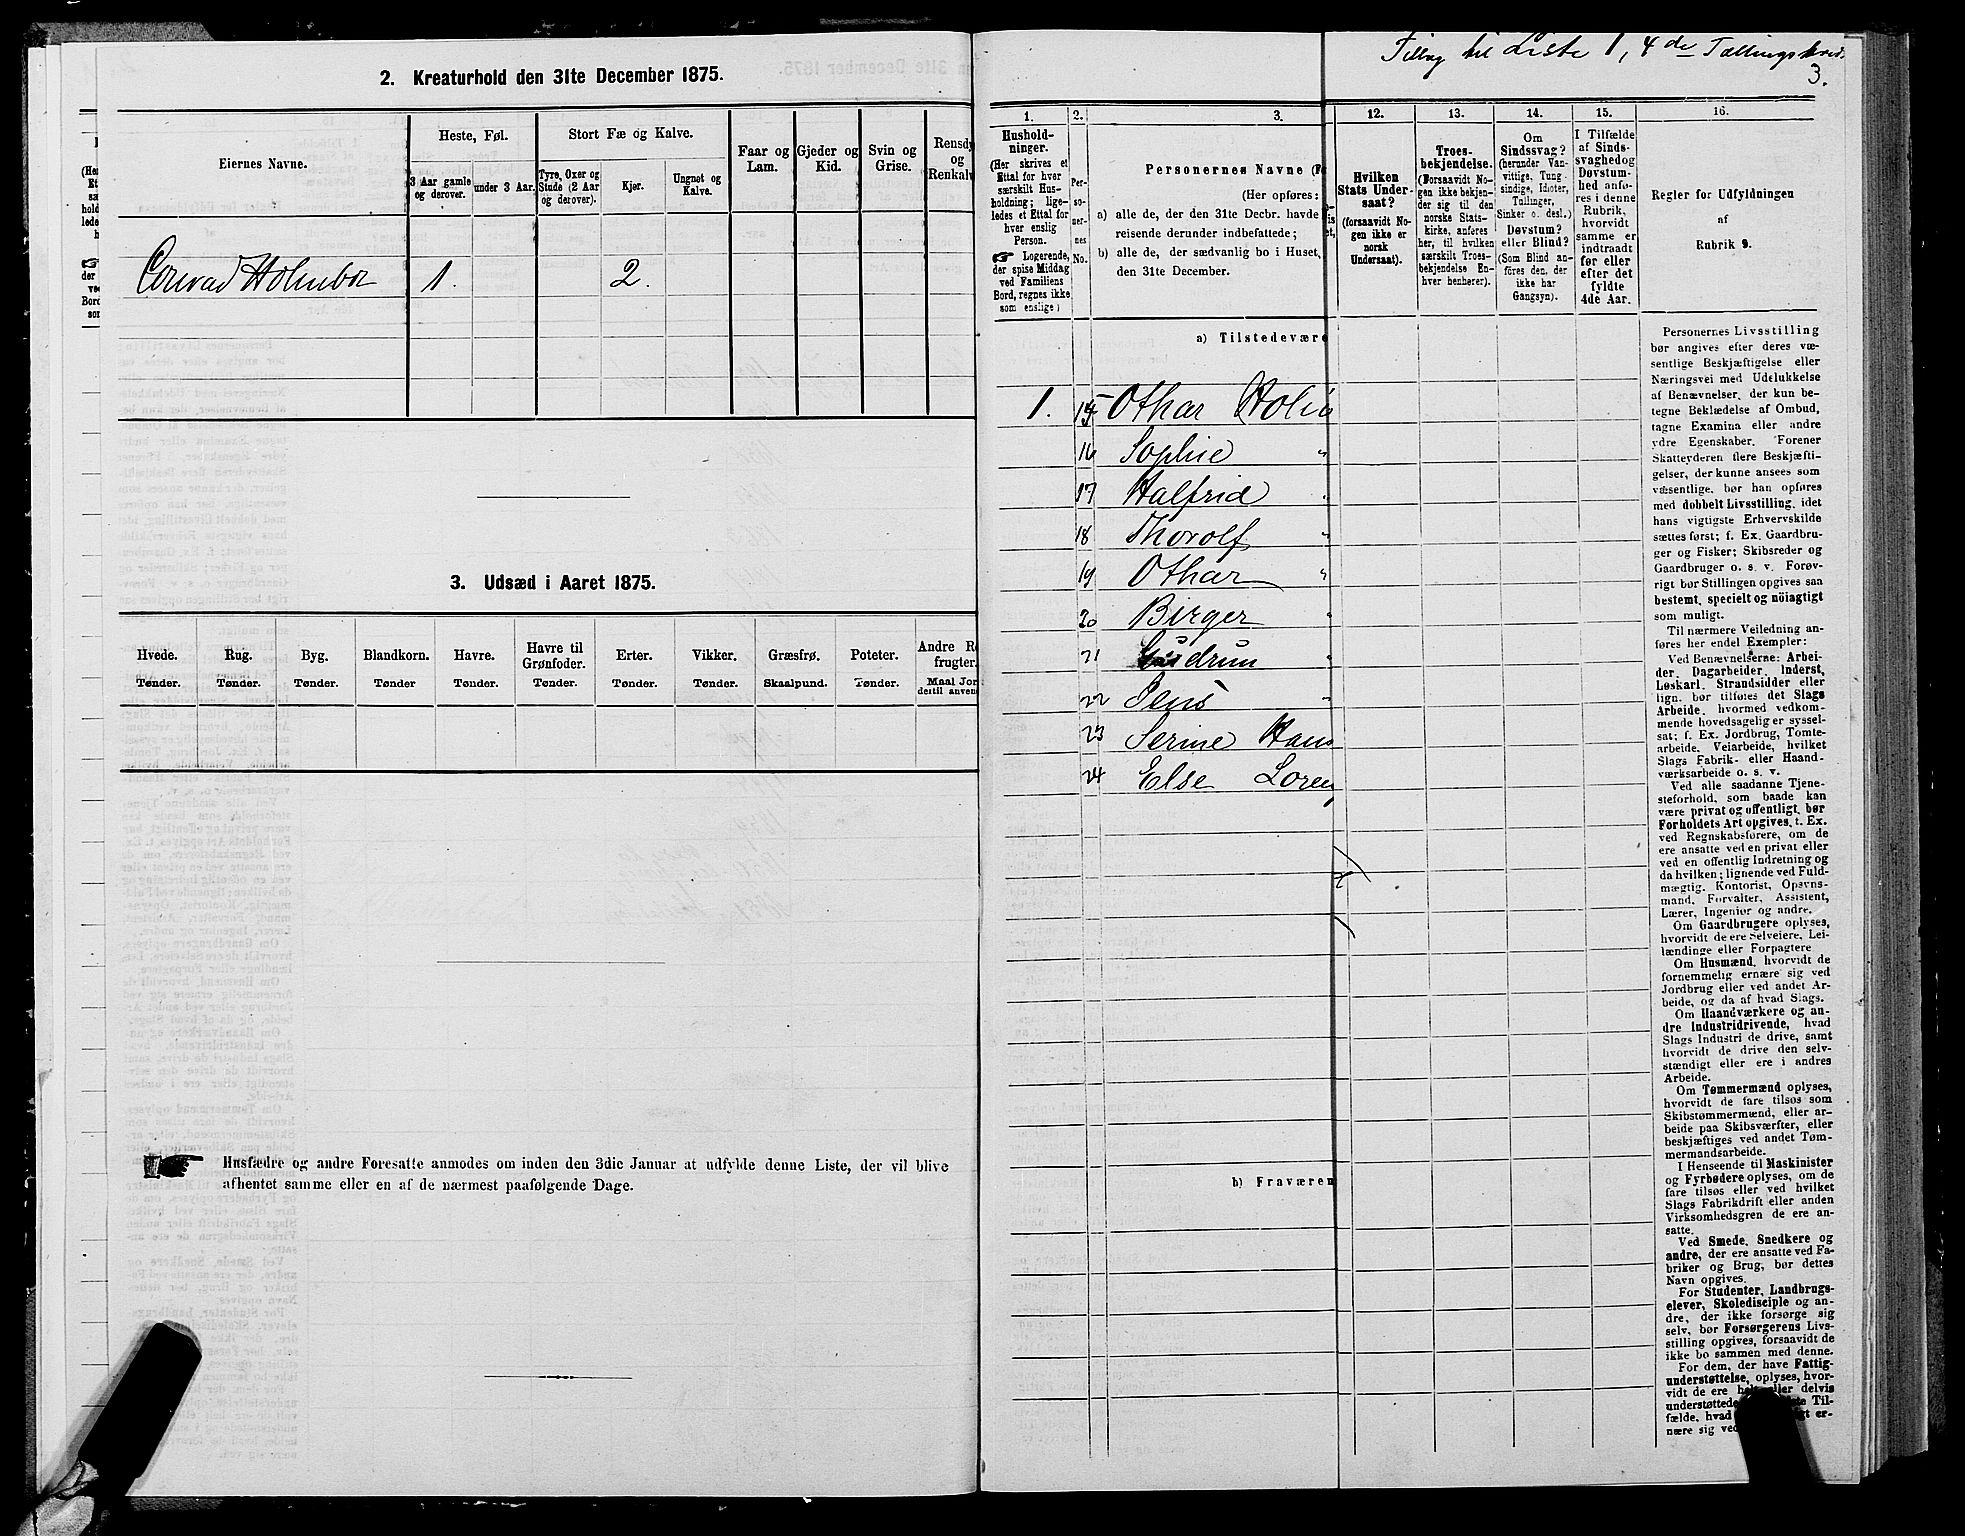 2. Kreaturhold den 31te December 1875.
Eiernes Navne.
Heste, Føl.
Stort Fæ og Kalve.
Faar og Lam.
Gjeder og Kid.
Svin og Grise.
Rensdy
og
Renkalv
3 Aar gamle og derover.
under 3 Aar.
Tyre, Oxer og Stude (2 Aar og derover).
Kjør.
Ungnøt og Kalve.
Conrad Holmboe 1. 2.
3. Udsæd i Aaret 1875.
Hvede. Rug. Byg. Blandkorn. Havre. Havre til Grønfoder. Erter. Vikker. Græsfrø. Poteter. Andre Ro
frugter.
Tønder. Tønder. Tønder. Tønder Tønder. Tønder. Tønder. Tønder. Skaalpund. Tønder. Maal Jor
destil anven
Husfædre og andre Foresatte anmodes om inden den 3die Januar at udfylde denne Liste, der vil blive
afhentet samme eller en af de nærmest paafølgende Dage.
Tillæg til Liste 1, 4de Tællingskreds
3.
1.
Hushold-
ninger.
(Her skrives et
Ettal for hver
særskilt Hus-
holdning; lige-
ledes et Ettal for
hver enslig
Person.
Logerende,
der spise Middag
ved Familiens
Bord, regnes ikke
som enslige)
2.
Per-
so-
ner-
nes
No.
3.
Personernes Navne (F
(Her opføres:
a) alle de, der den 31te Decbr. havde
reisende derunder indbefattede;
b) alle de, der sædvanlig bo i Huset,
den 31te December.
12.
Hvilken
Stats Under-
saat?
(forsaavidt No-
gen ikke er
norsk
Undersaat).
13.
Troes-
bekjendelse.
(Forsaavidt No-
gen ikke bekjen-
der sig til den
norske Stats-
kirke, anføres
her, til hvilken
særskilt Troes-
bekjendelse En-
hver henhører).
14.
Om
Sindssvag?
(herunder Van-
vittige, Tung-
sindige, Idioter,
Tullinger,
Sinker o. desl.)
Døvstum?
eller Blind?
(Som Blind an-
føres den, der
ikke har
Gangsyn).
15.
I Tilfælde
af Sinds-
svaghed og
Døvstum-
hed anfø-
res i denne
Rubrik,
hvorvidt
samme er
indtraadt
før eller
efter det
fyldte
4de Aar.
16.
Regler for Udfyldningen
af
Rubrik 9.
a) Tilstedevære
1. 15 Othar Holm
16 Sophie "
17 Halfrid "
18 Thorolf "
19 Othar "
20 Birger "
21 Gudrun "
22 Jens "
23 Serine Hans
24 Else Loren
b) Fraværen
Personernes Livsstilling
bør angives efter deres væ-
sentlige Beskjæftigelse eller
Næringsvei med Udelukkelse
af Benævnelser, der kun be-
tegne Beklædelse af Ombud,
tagne Examina eller andre
ydre Egenskaber. Forener
Skatteyderen flere Beskjæfti-
gelser, der kunne ansees som
væsentlige, bør han opføres
med dobbelt Livsstilling, idet
hans vigtigste Erhvervskilde
sættes først; f. Ex. Gaardbru-
ger og Fisker; Skibsreder og
Gaardbruger o. s. v. Forøv-
rigt bør Stillingen opgives saa
bestemt, specielt og nöiagtigt
som muligt.
Til nærmere Veiledning an-
føres her endel Exempler:
Ved Benævnelserne: Arbei-
der, Dagarbeider, Inderst,
Løskarl, Strandsidder eller
lign. bør tilføies det Slags
Arbeide, hvormed vedkom-
mende hovedsagelig er syssel-
sat; f. Ex. Jordbrug, Tomte-
arbeide. Veiarbeide, hvilket
Slags Fabrik- eller Haand-
værksarbeide o. s. v.
Ved alle saadanne Tjene-
steforhold, som baade kan
være privat og offentligt, bør
Forholdets Art opgives, t. Ex.
ved Regnskabsførere, om de
ere ansatte ved en privat eller
ved en offentlig Indretning og
da hvilken; lignende ved Fuld-
mægtig. Kontorist, Opsyns-
mand, Forvalter, Assistent,
Lærer, Ingeniør og andre.
Om Gaardbrugere oplyses,
hvorvidt de ere Selveiere, Lei-
lændinge eller Forpagtere
Om Husmænd, hvorvidt de
fornemmelig ernære sig ved
Jordbrug eller ved andet Ar-
beide, og da af hvad Slags.
Om Haandværkere og an-
dre Industridrivende, hvad
Slags Industri de drive, samt
hvorvidt de drive den selv-
stændigt eller ere i andres
Arbeide.
Om Tømmermænd oplyses,
hvorvidt de fare tilsøs som
Skibstømmermænd, eller ar-
beide paa Skibsværfter, eller
beskjæftiges ved andet Tøm-
mermandsarbeide.
I Henseende til Maskinister
og Fyrbødere oplyses, om de
fare tilsøs eller ved hvilket
Slags Fabrikdrift eller anden
Virksomhedsgren de ere an-
satte.
Ved Smede, Snedkere og
andre, der ere ansatte ved Fa-
briker og Brug, bør dettes
Navn opgives.
For Studenter, Landbrugs-
elever, Skoledisciple og an-
dre, der ikke forsørge sig
selv, bør Forsørgerens Livs-
stilling opgives, forsaavidt de
ikke bo sammen med denne.
For dem, der have Fattig-
understøttelse, oplyses, hvor-
vidt de ere helt eller delvis
understøttede Til-
fælde, hvad er-
nære sig ved